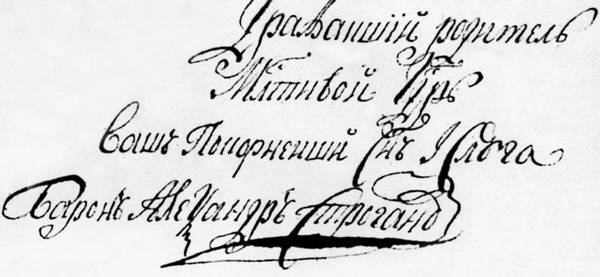 Дражаишїй родитель
Млтивой Гдрь
Вашъ Покорнеиши Снъ I Слуга
Баронъ Алеѯандръ Строгановъ